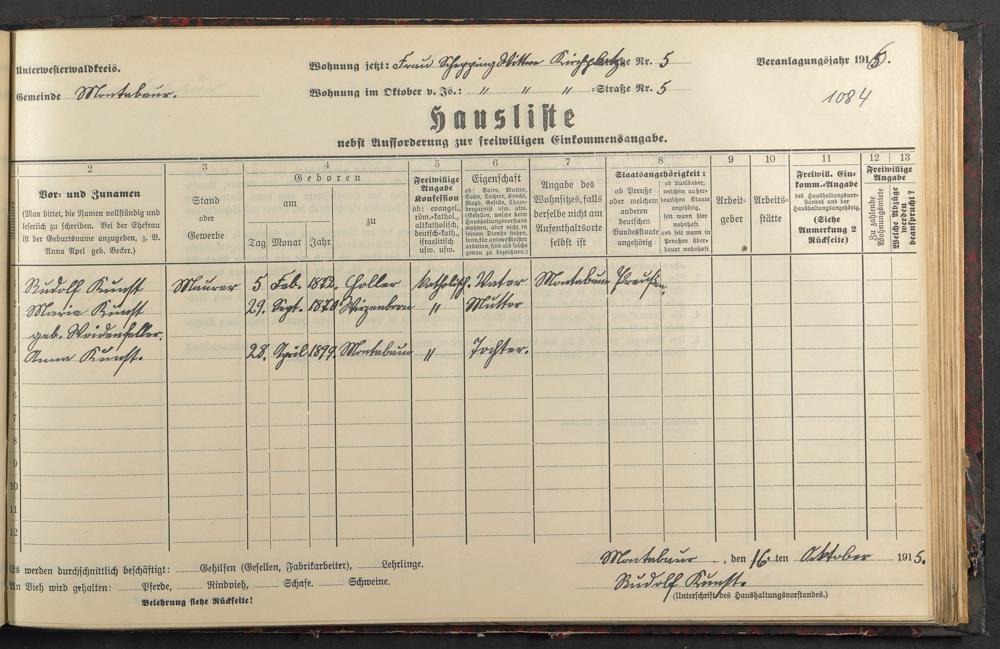 Unterwesterwaldkreis.
Gemeinde Montabaur.
Wohnung jetzt: Frau Schepping Witwe Kirchplatz Nr. 5
Wohnung im Oktober v. Js.: " " " -Straße Nr. 5
Veranlagungsjahr 1916.
1084
Hausliste
nebst Aufforderung zur freiwilligen Einkommensangabe.
2 3 4 5 6 7 8 9 10 11 12 13
Vor- und Zunamen
(Man bittet, die Namen vollständig und
leserlich zu schreiben. Bei der Ehefrau
ist der Geburtsname anzugeben, z. B.
Anna Apel geb. Becker.)
Stand
oder
Gewerbe
Geboren
am
zu
Tag Monat Jahr
Freiwillige
Angabe
Konfession
ob: evangel.,
röm.-kathol.,
altkatholisch,
deutsch-kath.,
israelitisch
usw. usw.
Eigenschaft
ob: Vater, Mutter,
Sohn, Tochter, Knecht,
Magd, Geselle, Cham-
bregarnist usw. usw.
(Gesellen, welche beim
Haushaltungsvorstand
wohnen, aber nicht in
seinem Dienste stehen,
sond. für andere Meister
arbeiten, sind als solche
genau zu bezeichnen.)
Angabe des
Wohnsitzes, falls
derselbe nicht am
Aufenthaltsorte
selbst ist
Staatsangehörigkeit:
ob Preuße
oder welchem
anderen
deutschen
Bundesstaate
angehörig
ob Ausländer,
welchem außer-
deutschen Staate
angehörig,
seit wann hier
wohnhaft
und seit wann in
Preußen über-
haupt wohnhaft
Arbeit-
geber
Arbeits-
stätte
Freiwill. Ein-
komm.-Angabe
des Haushaltungsvor-
standes und der
Haushaltungsangehörig.
(Siehe
Anmerkung 2
Rückseite)
Freiwillige
Angabe
Zu zahlende
Wohnungsmiete
Welche Abzüge
werden
beansprucht?
Rudolf Kunst Maurer 5 Feb. 1872. Holler katholisch. Vater Montabaur Preußen.
Maria Kunst 29. Sept. 1870 Wirzenborn " Mutter
geb. Weidenfeller.
Anna Kunst. 28. April 1899. Montabaur " Tochter.
5
6
7
8
9
10
11
12
Es werden durchschnittlich beschäftigt: Gehilfen (Gesellen, Fabrikarbeiter), Lehrlinge.
An Vieh wird gehalten: Pferde, Rindvieh, Schafe. Schweine.
Belehrung siehe Rückseite!
Montabaur, den 16. ten Oktober 1915.
Rudolf Kunst.
(Unterschrift des Haushaltungsvorstandes.)